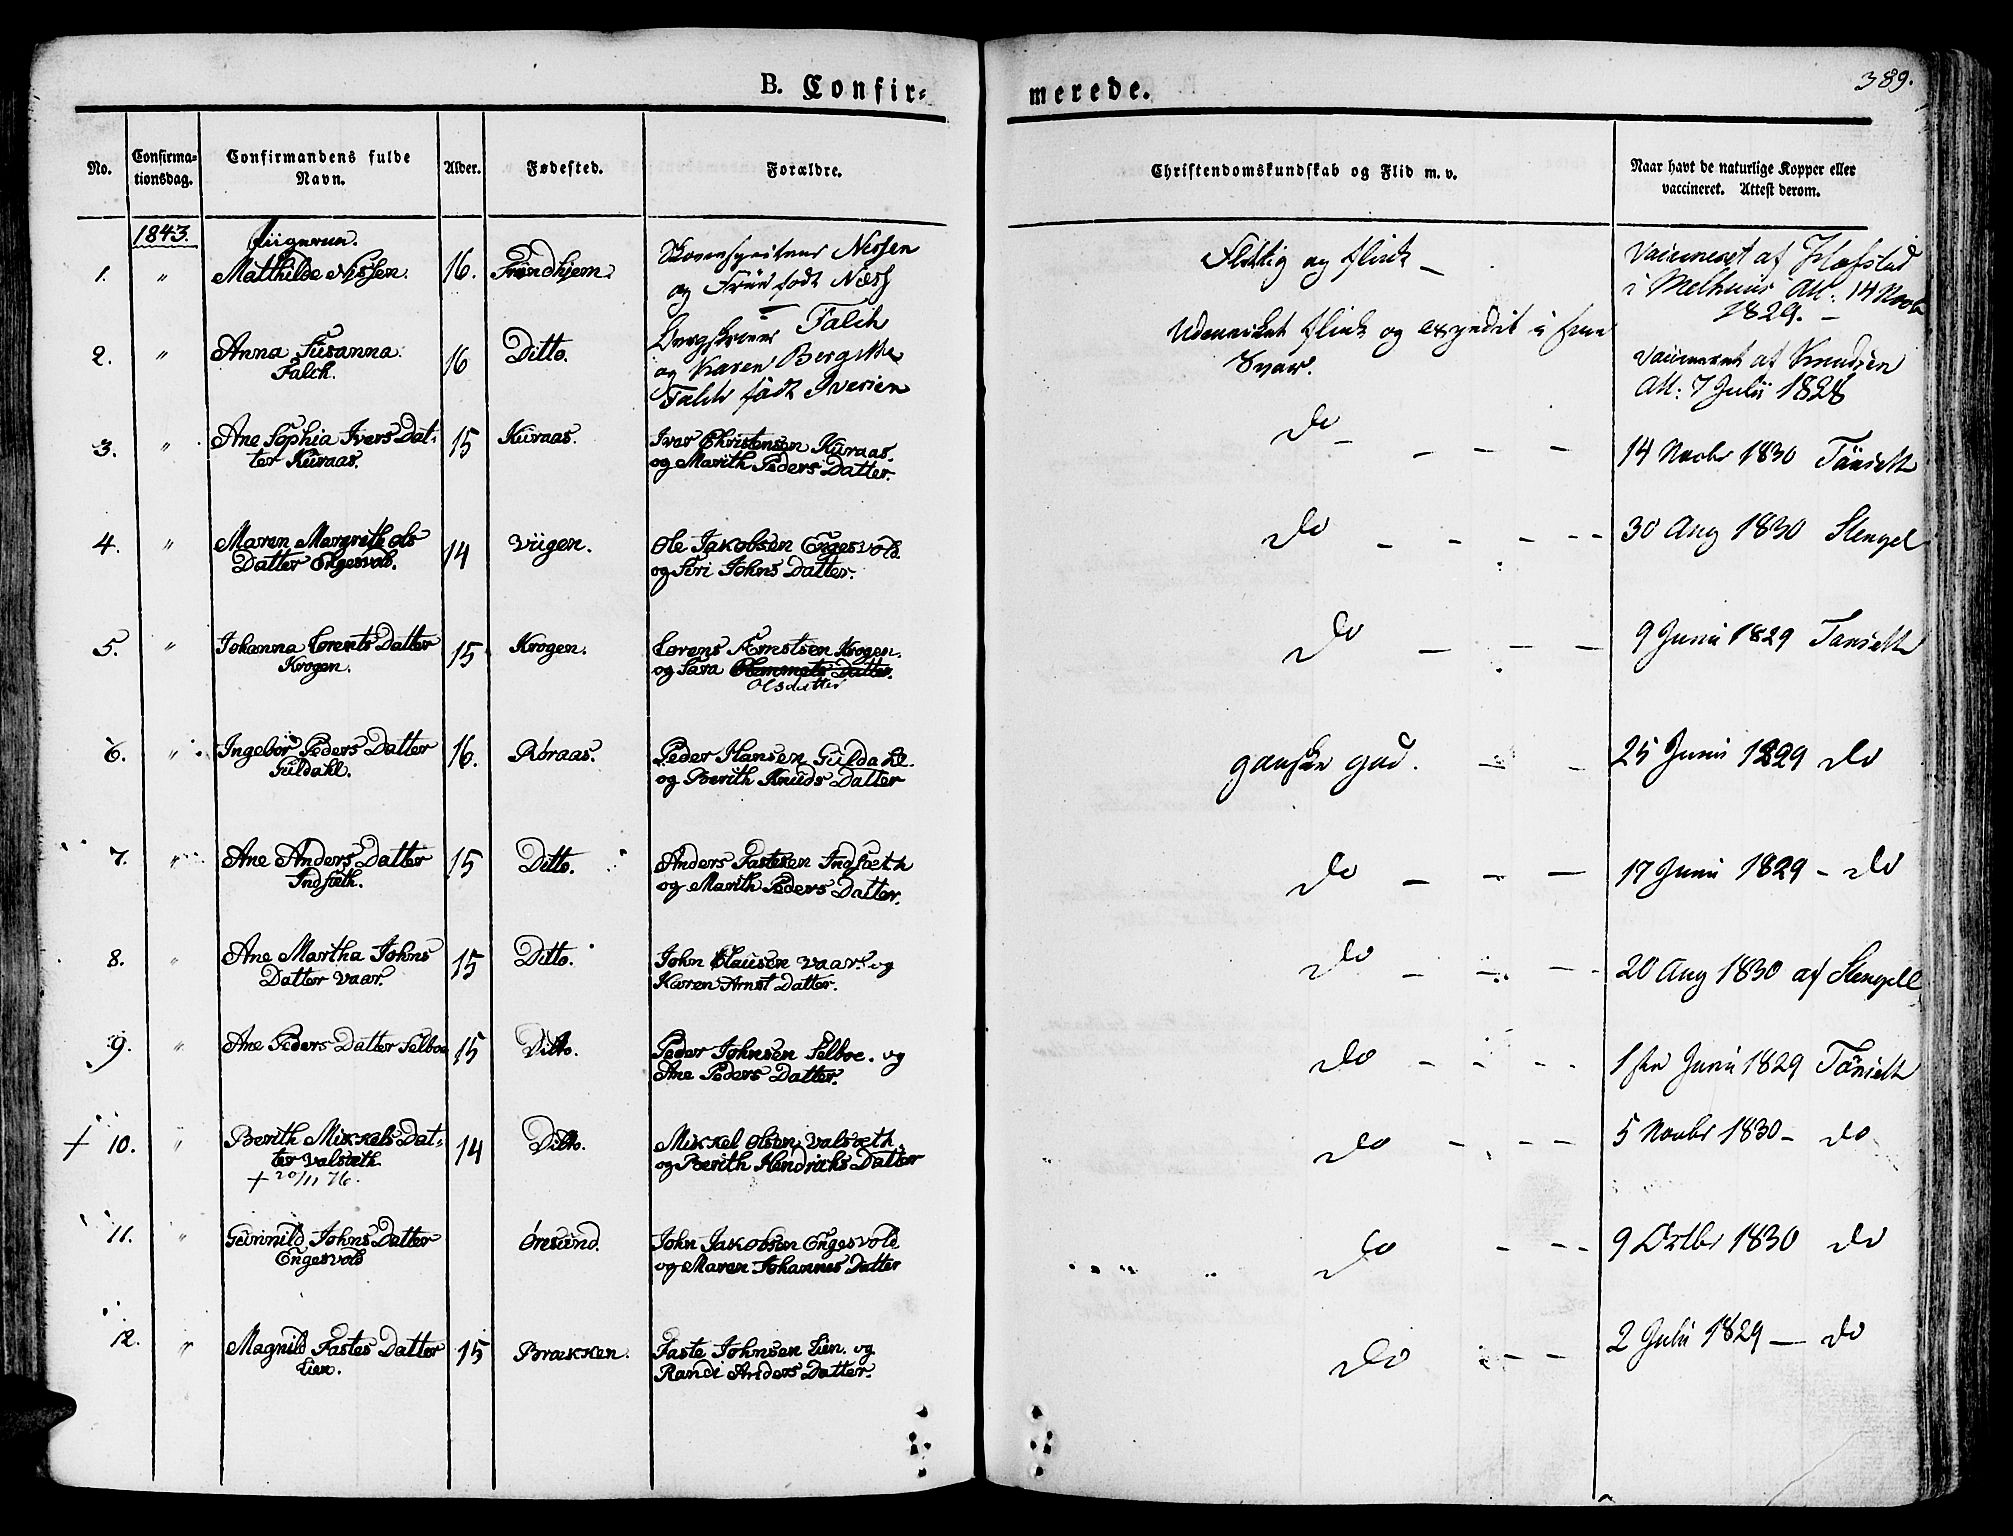 B. Confir=
merede.
389.
No.
Confirma=
tionsdag.
Confirmandens fulde
Navn.
Alder.
Fødested.
Forældre.
Christendomskundskab og Flid m. v.
Naar havt de naturlige Kopper eller
vaccineret. Attest derom.
1843.
Piigerne.
1. " Mathilde Nissen. 16. Trondhjem.
Nissen
og Frue født
Flittig og flink —
Vaccineret af Hofstad
i Melhuus Att: 14 Novbr
1829. —
2. " Anna Susanna
Falch. 16 Ditto.
Bergskriver Falch
og Karen Bergitthe
Falch født Iversen
Udmærket flink og expedit i sine
Svar.
Vaccineret af Knudsen
Att: 7 Julii 1828
3. " Ane Sophia Ivers Dat=
ter Kuraas. 15 Kuraas.
Ivar Christensen Kuraas.
og Marith Peders Datter.
Do — — — —
14 Novbr 1830 Tönsett
4. " Maren Margrith Ols
Datter Engesvold. 14 Viigen.
Ole Jakobsen Engesvold
og Siri Johns Datter.
Do — — — - -
30 Aug 1830 Stengel
5. " Johanna Lorents Datter
Krogen. 15 Krogen.
Lorens Arntsen Krogen.
og Sara Clemmets Datter.
Olsdatter
Do — — —
9 Junii 1829 Tönsett
6. " Ingebor Peders Datter
Guldahl. 16. Røraas.
Peder Hansen Guldahl.
og Berith Knuds Datter
ganske god. — -
25 Junii 1829 Do
7. " Ane Anders Datter
Indsæth. 15 Ditto.
Anders Fastesen Indsæth
og Marith Peders Datter.
Do — - —
17 Junii 1829 - Do
8. " Ane Martha Johns
Datter Vaar. 15 Ditto.
John Clausen Vaar. og
Karen Arnst Datter.
Do — — — -
20 Aug 1830 af Stengell
9. " Ane Peders Datter Selboe 15 Ditto.
Peder Johnsen Selboe. og
Ane Peders Datter.
Do — - - -
1ste Junii 1829 Tönsett
+ 10. " Berith Mikkels Dat=
ter Valsæth. 14 Ditto.
+ 20/11 76.
Mikkel Olsen Valsæth.
og Berith Hendrichs Datter
Do — — —
5 Novbr 1830 - Do
11. " Gunnild Johns Datter
Engesvold Øresund.
John Jakobsen Engesvold
og Maren Johannes Datter
Do - — -
9 Octbr 1830 Do
12. " Magnild Fastes Datter
Lien. 15 Brækken.
Faste Johnsen Lien. og
Randi Anders Datter.
Do - - —
2 Julii 1829 — Do